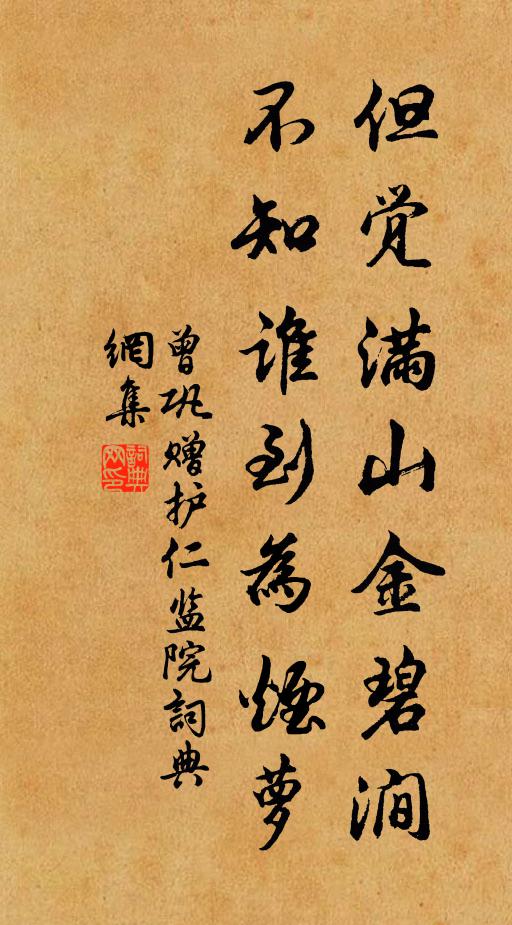 但觉满山金碧涧
不知谁到為煙萝
曾巩赠护仁监院詞典
網集
詞典
网印